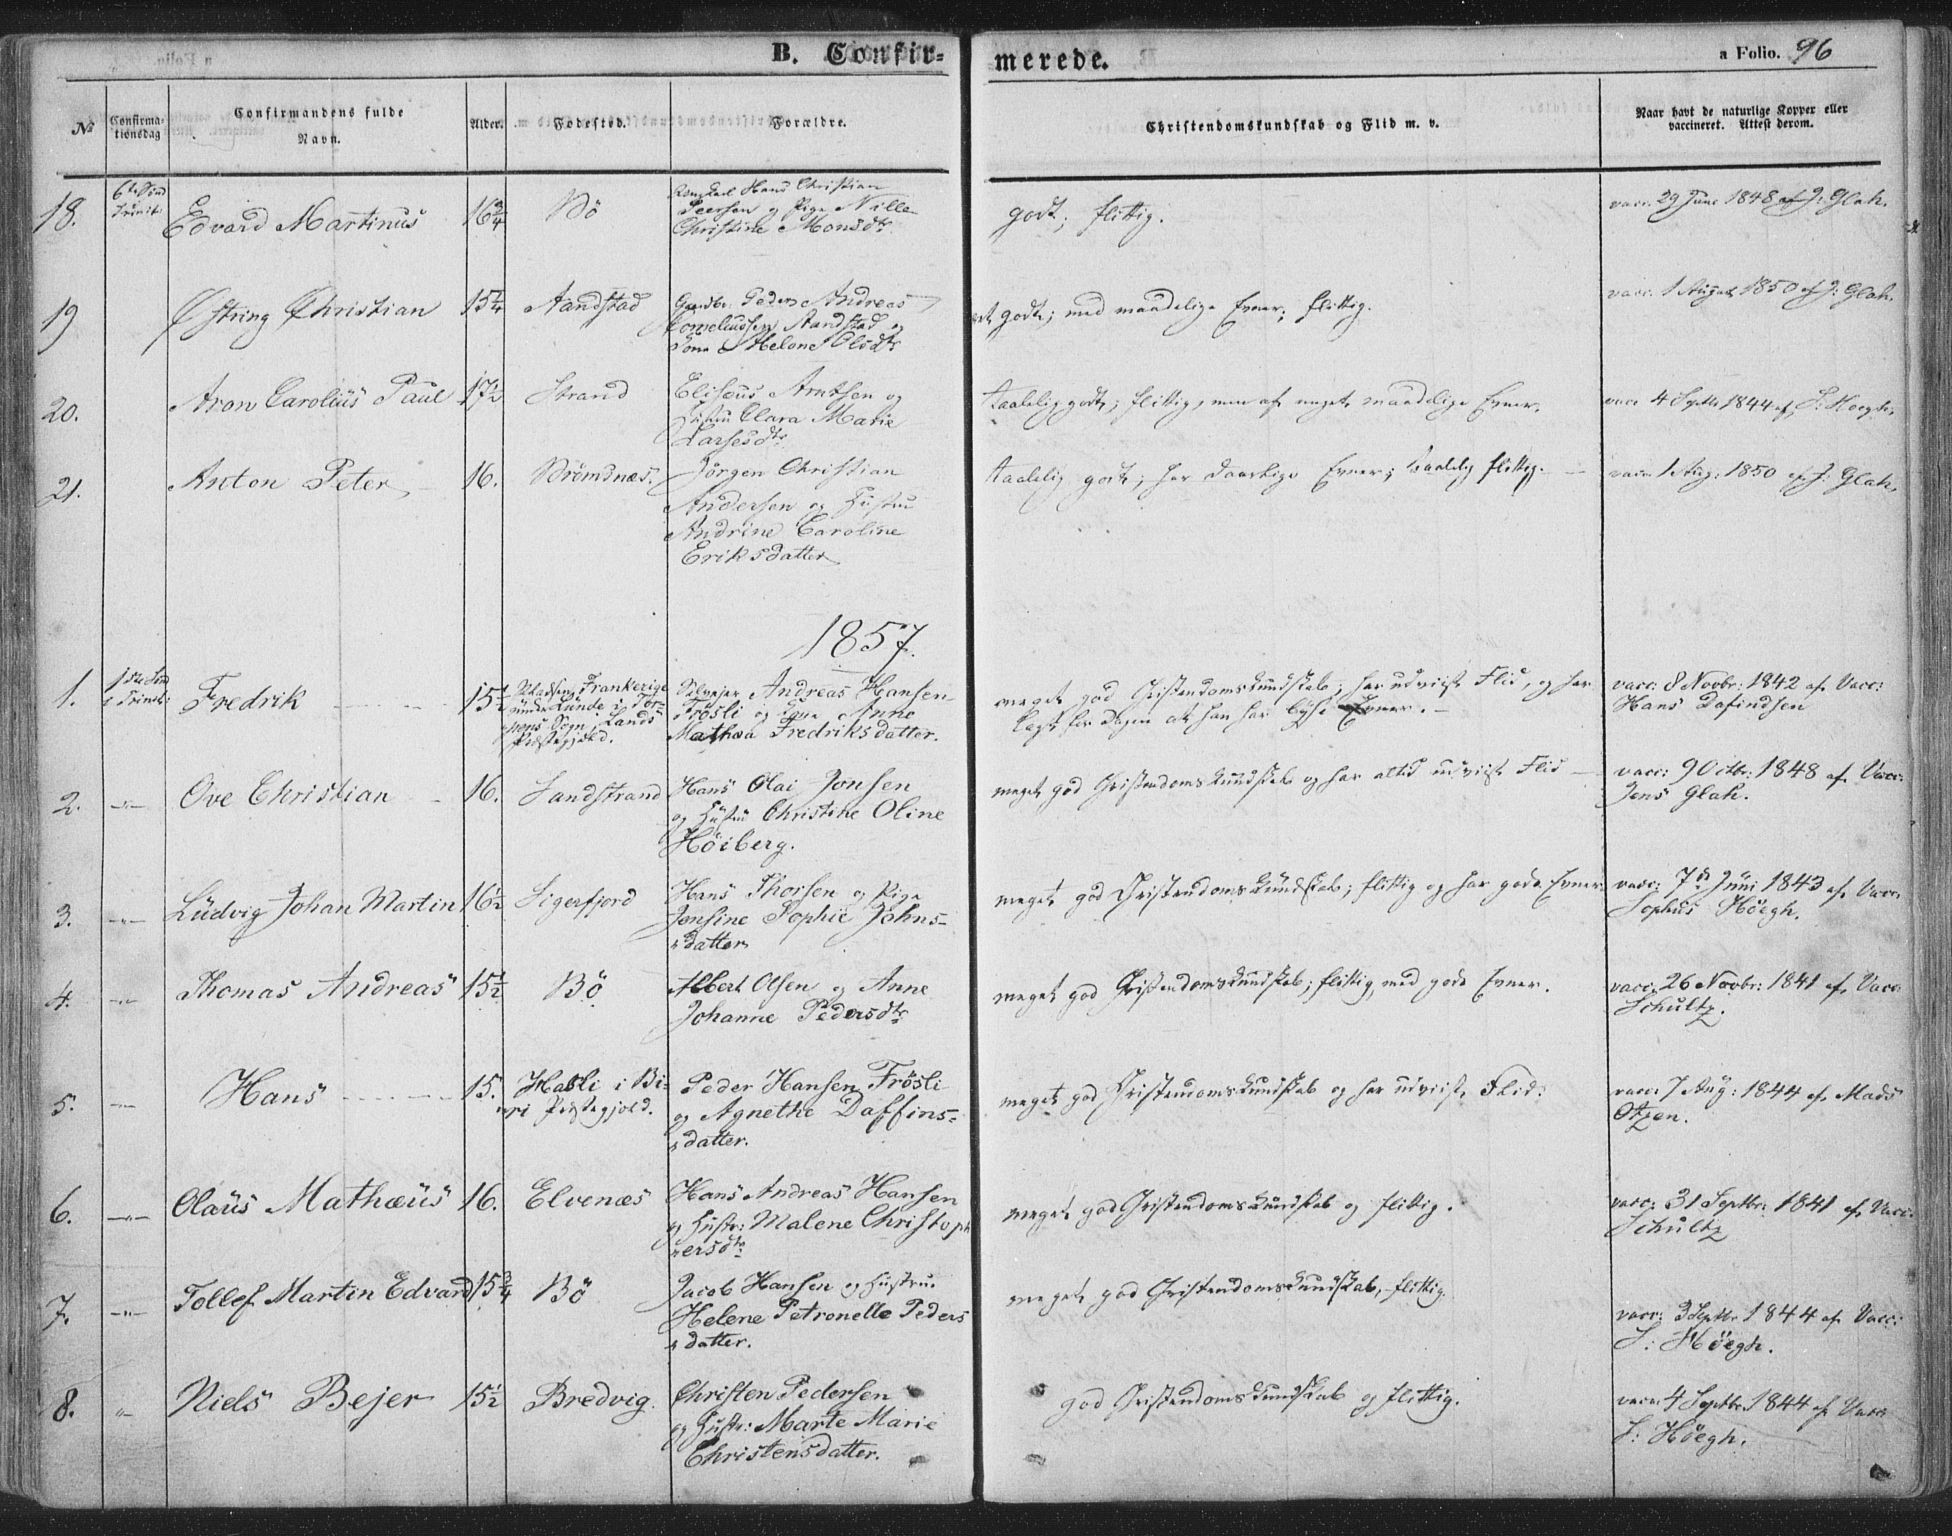 B. Confir- merede. a Folio. 96
№ Confirma-tionsdag Confirmandens fulde Navn. Alder. Fødested. Forældre. Christendomskundskab og Flid m. v. Naar havt de naturlige Kopper eller vaccineret. Attest derom.
18. 6te Sönd Trinit: Edvard Martinus 16¾ Bö Hans Christian
Peersen og Pige Nille
Christine Monsdtr
godt; flittig.
vacc. 29 Juni 1848 af J: Glah.
19 Østring Christian 15¼ Aandstad Gaardbr: Peder Andreas
Corneliussen Aandstad og
Kone Helene Olsdtr
godt; med maadelige Evner; flittig.
vacc. 1 August 1850 af J: Glah.
20. Aron Carolius Paul 17½ Strand Eliseus Arntsen og
Hustru Clara Marie
Larsesdtr
taalelig godt; flittig, men af meget maadelige Evner.
vacc 4 Septbr 1844 af S: Høegh.
21. Anton Peter 16. Bromsnæs. Jörgen Christian
Andersen og Hustru
Andrine Caroline
Eriksdatter
taalelig godt; har daarlige Evner; taalelig flittig.
vacc. 1 Aug: 1850 af J: Glah.
1857.
1. 1ste Sönd e Trinit: Fredrik 15½ Pladsen Frankerige
under Lunde i Tor-
pens Sogn, Lands
Præstegjeld.
Andreas Hansen
Frösli og Anne
Mathea Fredriksdatter.
meget god Christendomskundskab; har udviist Flid, og har
lagt for Dagen at han har Evner.
vacc: 8 Novbr: 1842 af Vacc:
Hans Dafindsen
2. -"- Ove Christian 16. Sandstrand Hans Olai Jonsen
og Hustru Christine Oline
Höiberg.
meget god Christendomskundskab og har altid udviist Flid
vacc: 9 Octbr: 1848 af Vacc:
Jens Glah.
3. -"- Ludvig Johan Martin 16½ Sigerfjord Hans Thorsen og Pige
Jensine Sophie Johns-
datter
meget god Christendomskundskab; flittig og har gode Evner
vacc: 7de Juni 1843 af Vacc.
Sophus Höegh.
4. -"- Thomas Andreas 15½ Bö Albert Olsen og Anne
Johanne Pedersdtr
meget god Christendomskundskab; flittig, med gode Evner.
vacc. 26 Novbr: 1841 af Vacc
Schultz.
5. -"- Hans 15. Hasli i Bi-
ri Præstegjeld.
Peder Hansen Frösli
og Agnethe Daffins-
datter.
meget god Christendomskundskab og har udviist Flid.
vacc: 7 Aug: 1844 af Mads
Otzen.
6. -"- Olaus Mathæus 16. Elvenæs Hans Andreas Hansen
og Hustr: Malene Christoph
ersdtr
meget god Christendomskundskab og flittig.
vacc: 31 Septbr: 1841 af Vacc:
Schultz
7. -"- Tollef Martin Edvard 15¾ Bö Jacob Hansen og Hustru
Helene Petronelle Peders
datter.
meget god Christendomskundskab, flittig.
vacc: 3 Septbr 1844 af Vacc:
S: Höegh.
8. " Niels Bejer 15½ Bredvig. Christen Pedersen
og Hustr: Marte Marie
Christensdatter.
god Christendomskundskab og flittig.
vacc: 4 Septbr. 1844 af Vacc
S: Höegh.